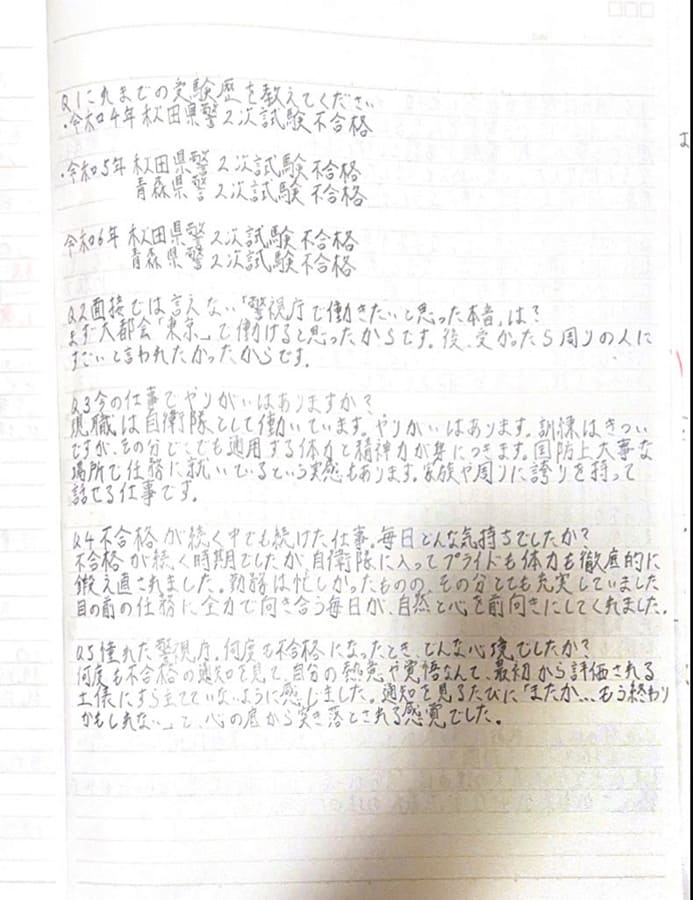 Q1これまでの受験歴を教えてください
・令和4年秋田県警2次試験不合格
・令和5年 秋田県警2次試験不合格
青森県警2次試験 不合格
令和6年 秋田県警2次試験 不合格
青森県警2次試験 不合格
Q2面接では言えない「警視庁で働きたいと思った本音」は？
まず大都会「東京」で働けると思ったからです。後、受かったら周りの人に
すごいと言われたかったからです。
Q3今の仕事でやりがいはありますか？
現職は自衛隊として働いています。やりがいはあります。訓練はきつい
ですが、その分どこでも通用する体力と精神力が身につきます。国防上大事な
場所で任務に就いているという実感もあります。家族や周りに誇りを持って
話せる仕事です。
Q4不合格が続く中でも続けた仕事。毎日どんな気持ちでしたか？
不合格が続く時期でしたが、自衛隊に入ってプライドも体力も徹底的に
鍛え直されました。勤務は忙しかったものの、その分とても充実していました
目の前の任務に全力で向き合う毎日が、自然と心を前向きにしてくれました。
Q5憧れた警視庁。何度も不合格になったとき、どんな心境でしたか？
何度も不合格の通知を見て、自分の熱意や覚悟なんて、最初から評価される
土俵にすら立てていないように感じました。通知を見るたびに「まただ...もう終わり
かもしれない」と、心の底から突き落とされる感覚でした。